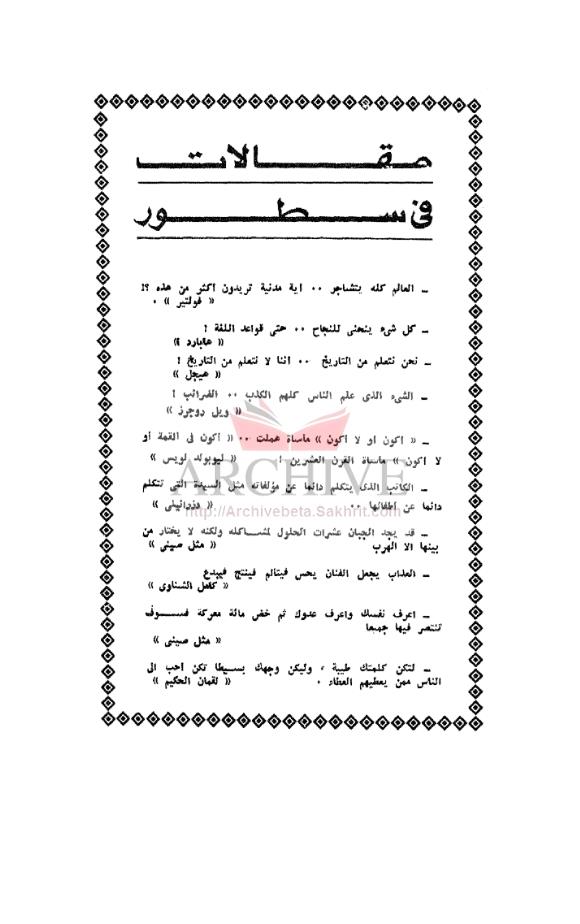 مقالات
في سطور
ــ العالم كله يتشاجر ٠٠ اية مدنية تريدون اكثر من هذه ؟!
« فولتير » ٠
ــ كل شيء ينحني للنجاح ٠٠ حتى قواعد اللغة !
« هابارد »
ــ نحن نتعلم من التاريخ ٠٠ اننا لا نتعلم من التاريخ !
« هيجل »
ــ الشيء الذي علم الناس كلهم الكذب ٠٠ الضرائب !
« ويل روجرز »
ــ « اكون او لا اكون » ماساة هملت ٠٠ « اكون في القمة او
لا اكون » ماساة القرن العشرين ! « ليوبولد لويس »
ARCHIVE
ــ الكاتب الذي يتكلم دائما عن مؤلفاته مثل السيدة التي تتكلم
دائما عن اطفالها ٠٠ « دزرائيلي »
http://Archivebeta.Sakhrit.com
ــ قد يجد الجبان عشرات الحلول لمشاكله ولكنه لا يختار من
بينها الا الهرب « مثل صيني »
ــ العذاب يجعل الفنان يحس فيتالم فينتج فيبدع
« كامل الشناوي »
ــ اعرف نفسك واعرف عدوك ثم خض مائة معركة فسوف
تنتصر فيها جميعا
« مثل صيني »
ــ لتكن كلمتك طيبة ، وليكن وجهك بسيطا تكن احب الى
الناس ممن يعطيهم العطاء ٠ « لقمان الحكيم »